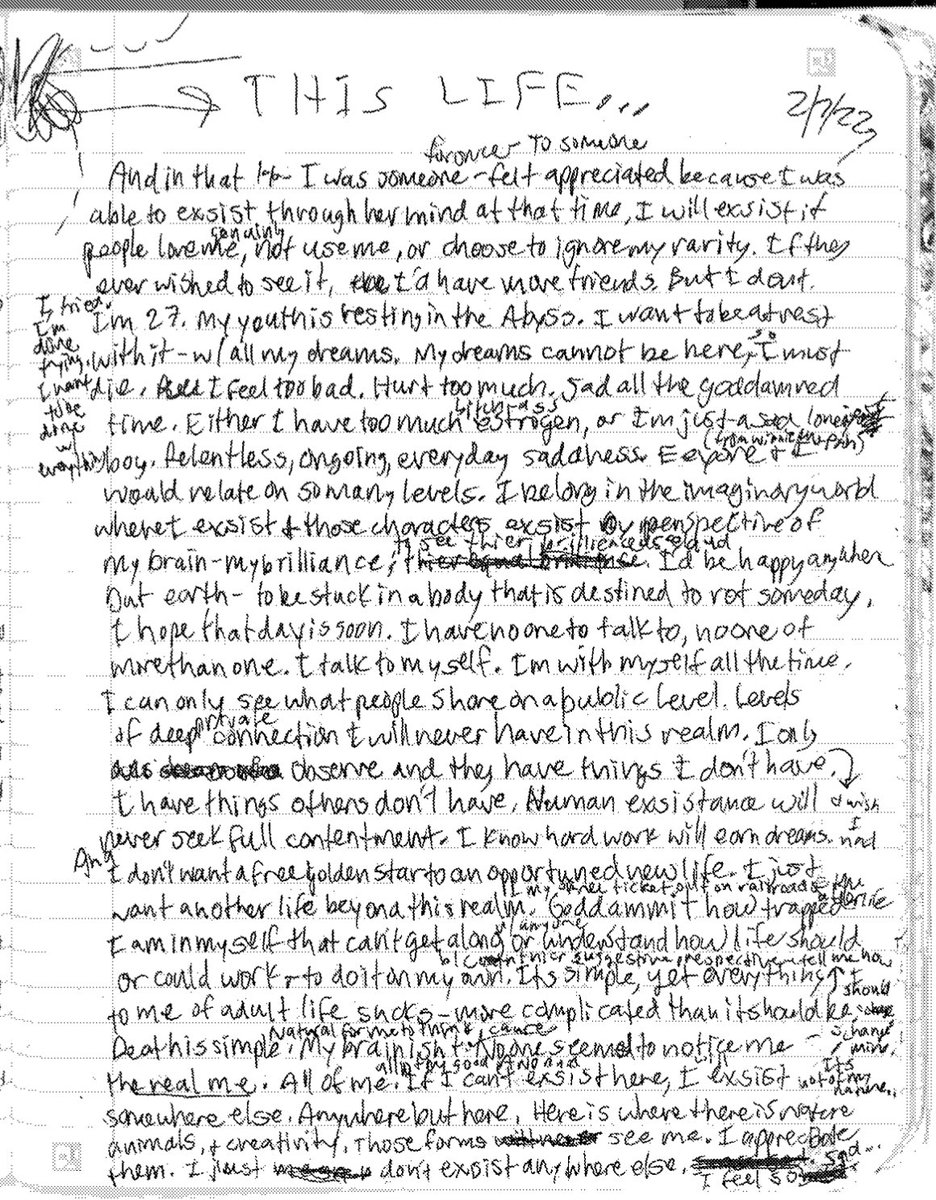 THIS LIFE...
2/7/22
for once - To someone
And in that I was someone - felt appreciated because I was
able to exsist through her mind at that time, I will exsist if
genuinly
people love me, not use me, or choose to ignore my rarity. If they
ever wished to see it, I'd have more friends. But I dont.
I'm 27. My youth is resting in the Abyss. I want to be at rest
with it - w/ all my dreams. My dreams cannot be here, so I must
die. I feel too bad. Hurt too much. Sad all the goddamned
bitch ass
time. Either I have too much estrogen, or I'm just a sad lonely
(from winnie the pooh)
boy. Relentless, ongoing, everyday saddness. Eeyore & I
would relate on so many levels. I belong in the imaginary world
where I exsist & those characters exsist by perspective of
to see thier brillience
my brain - my brilliance, I'd be happy anywhere
but earth - to be stuck in a body that is destined to rot someday,
I hope that day is soon. I have no one to talk to, no one of
more than one. I talk to myself. I'm with myself all the time.
I can only see what people share on a public level. Levels
private
of deep connection I will never have in this realm. I only
observe and they have things I don't have.
I have things others don't have. Human exsistance will
never seek full contentment. I know hard work will earn dreams.
And I don't want a free golden star to an opportuned new life. I just
want another life beyond this realm. Goddammit how trapped
w/ anyone
I am in myself that can't get along or understand how life should
or could work & to do it on my own. Its simple, yet everything
to me of adult life sucks - more complicated than it should be
Natural for me to think
Death is simple. My brain isn't. No one seemed to notice me
the real me. All of me. If I can't exsist here, I exsist
somewhere else. Anywhere but here. Here is where there is nature
animals, & creativity. Those forms see me. I appreciate
them. I just don't exsist anywhere else.
I feel so sad...
I tried.
I'm
done
trying.
I want
to be
done
w/
everything
& wish
I
had
I
should
change
mine.
Its
not of my
nature..